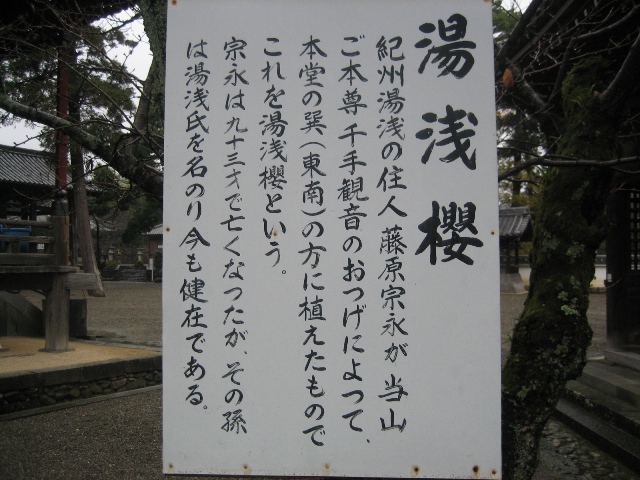 湯浅櫻
紀州湯浅の住人 藤原宗永が 当山
ご本尊千手観音のおつげによつて、
本堂の巽(東南)の方に植えたもので
これを湯浅櫻という。
宗永は九十三才で亡くなつたが、その孫
は湯浅氏を名のり今も健在である。